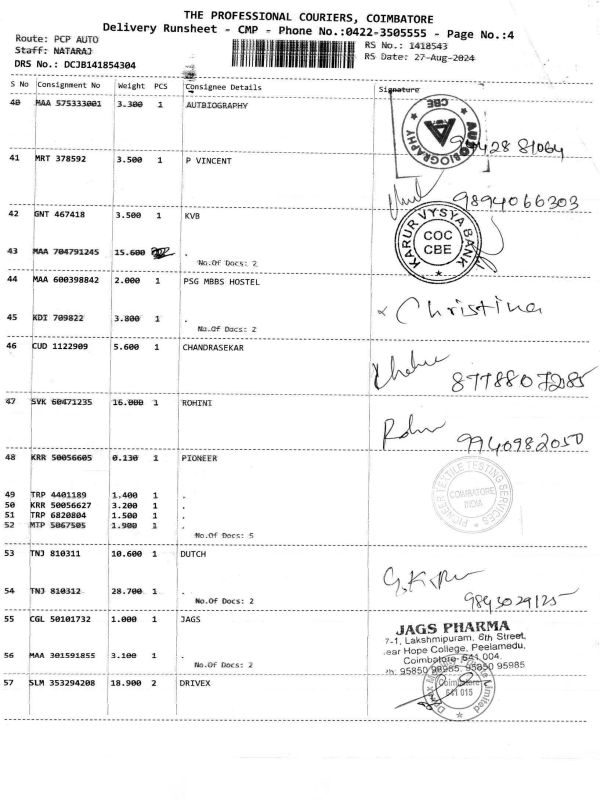 THE PROFESSIONAL COURIERS, COIMBATORE
Delivery Runsheet - CMP - Phone No.:0422-3505555 - Page No.:4
Route: PCP AUTO
RS No.: 1418543
Staff: NATARAJ
RS Date: 27-Aug-2024
DRS No.: DCJB141854304
S No Consignment No Weight PCS Consignee Details Signature
40 MAA 575333001 3.300 1 AUTBIOGRAPHY
AUTOBIOGRAPHY CBE
81064
41 MRT 378592 3.500 1 P VINCENT
9894066303
42 GNT 467418 3.500 1 KVB
KARUR VYSYA BANK
COC
CBE
43 MAA 704791245 15.600 .
No.Of Docs: 2
44 MAA 600398842 2.000 1 PSG MBBS HOSTEL
Christina
45 KDI 709822 3.800 1 .
No.Of Docs: 2
46 CUD 1122909 5.600 1 CHANDRASEKAR
47 SVK 60471235 16.000 1 ROHINI
9940982050
48 KRR 50056605 0.130 1 PIONEER
PIONEER TEXTILE TESTING SERVICES
COIMBATORE
INDIA
49 TRP 4401189 1.400 1 .
50 KRR 50056627 3.200 1 .
51 TRP 6820804 1.500 1 .
52 MTP 5067505 1.900 1 .
No.Of Docs: 5
53 TNJ 810311 10.600 1 DUTCH
9843029125
54 TNJ 810312 28.700 1 .
No.Of Docs: 2
55 CGL 50101732 1.000 1 JAGS
JAGS PHARMA
7-1, Lakshmipuram, 6th Street,
ear Hope College, Peelamedu,
Coimbatore-641 004.
56 MAA 301591855 3.100 1 .
No.Of Docs: 2
h: 95850 98985, 95850 95985
57 SLM 353294208 18.900 2 DRIVEX
Coimbatore
641 015
Limited